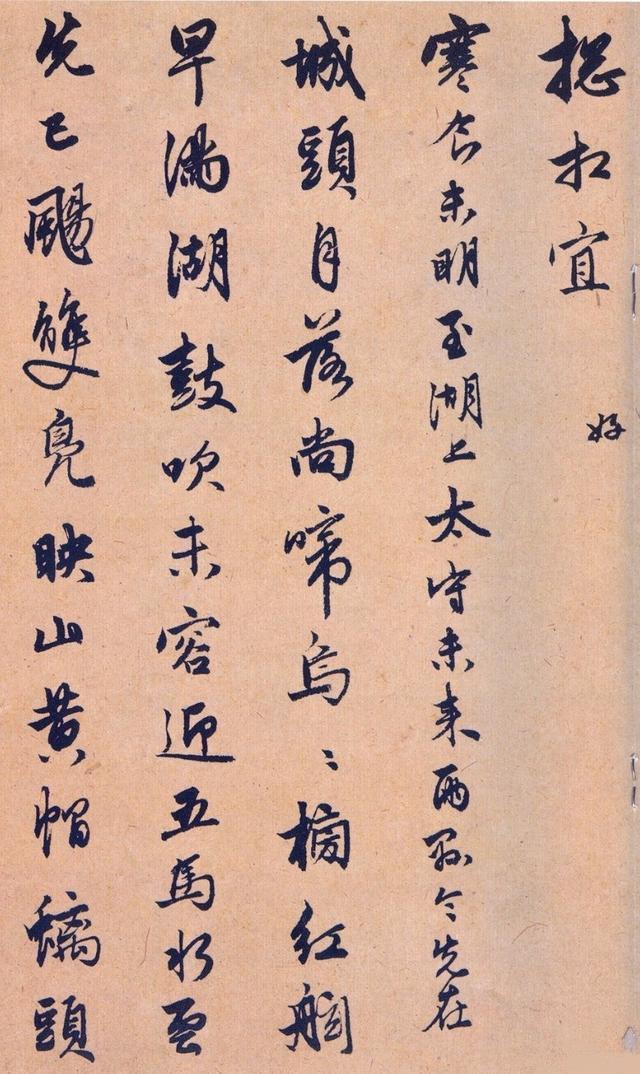 揔相宜
好
寒食未明至湖上太守未来兩縣令先在
城頭月落尚啼烏〻榜紅舷
早滿湖鼓吹未容迎五馬水雲
先已颺雙鳧映山黄帽螭頭